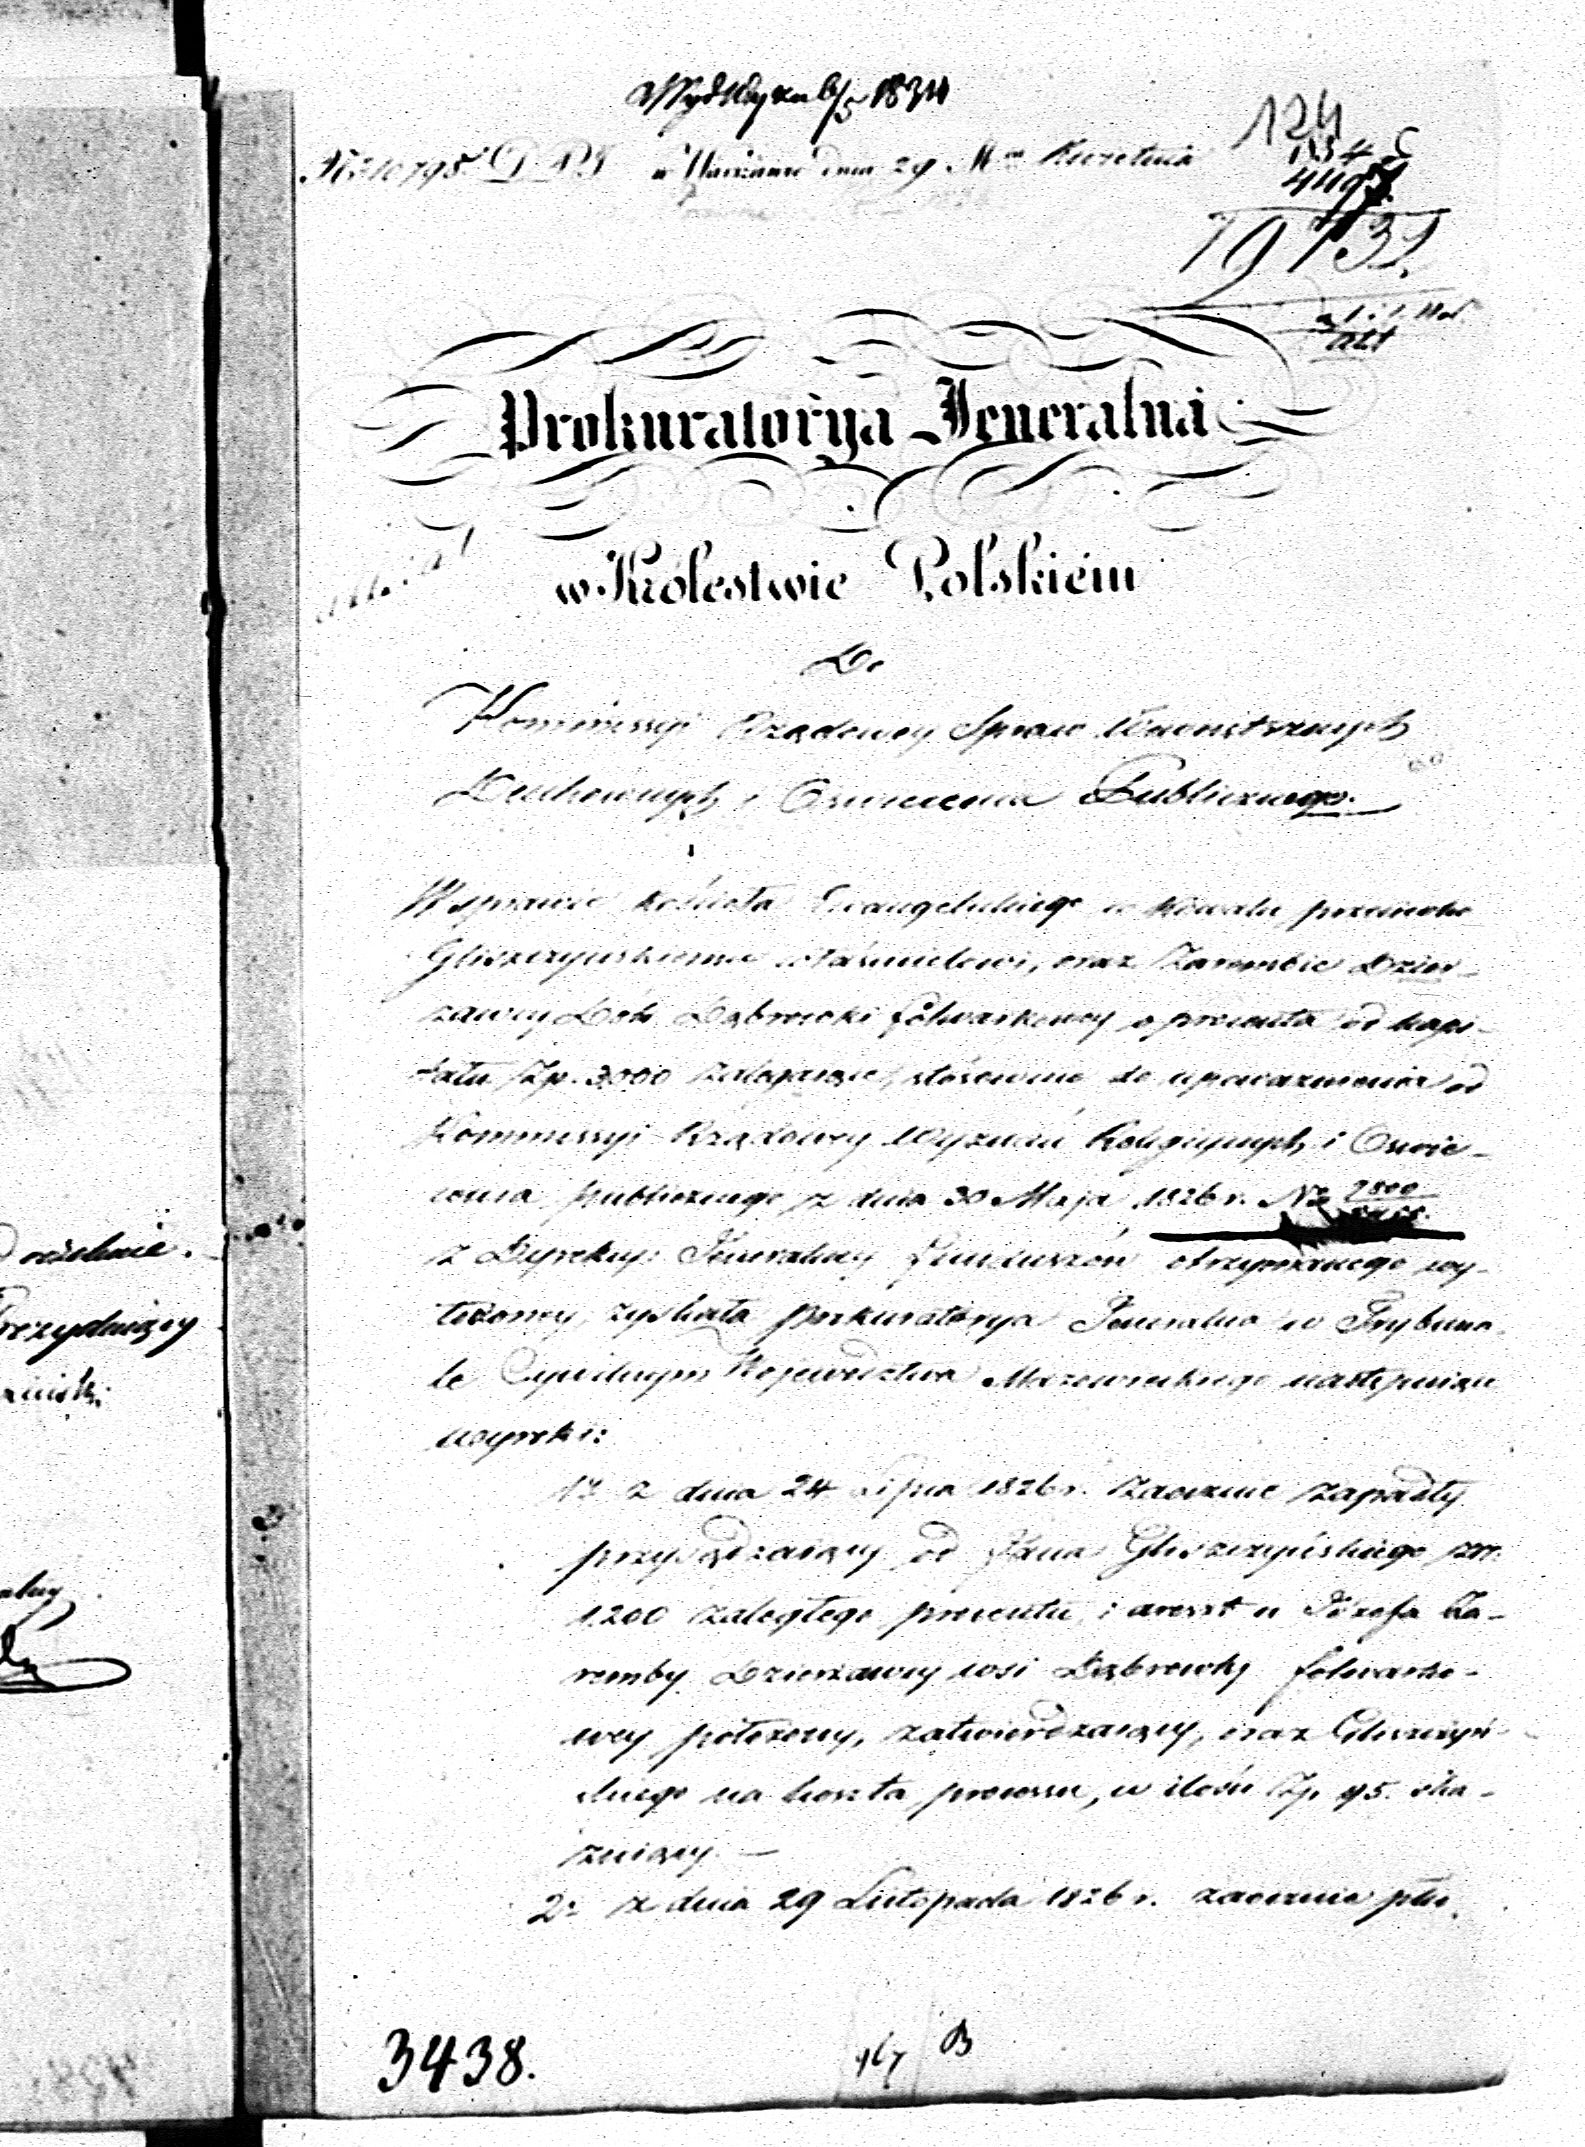 1834
124
w Warszawie dnia 29 Mca Kwietnia
Prokuratorya Jeneralna
w Królestwie Polskiém
Do
Kommissyi Rządowey Spraw Wewnętrznych
Duchownych i Oswiecenia Publicznego.
W sprawie kościoła Ewangelickiego w Kowalu przeciwko
Gliszczyńskiemu właścicielowi, oraz Zarembie Dzier-
zawcy Dóbr Dąbrowki folwarkowey o procenta od kapi-
tału Zp. 3000 zalegaiące, stósownie do upoważnienia od
Kommissyi Rządowey Wyznań Religiynych i Oswie-
cenia publicznego z dnia 30 Maja 1826 r. No
z Dyrekcyi Jeneralney Funduszów otrzymanego wy-
toczoney, zyskała Prokuratorya Jeneralna w Trybuna-
le Cywilnym Województwa Mazowieckiego następuiące
wyroki:
1º z dnia 24 Lipca 1826 r. zaocznie zapadły
przysądzaiący od Jana Gliszczyńskiego
1200 zaległego procentu, i areszt u Józefa Za-
remby Dzierzawcy wsi Dąbrowky folwarko-
wey położony, zatwierdzaiący, oraz Gliszczyń-
skiego na koszta processu, w ilości Zp. 95. ska-
zuiący. —
2º z dnia 29 Listopada 1826 r. zaocznie
3438.
B
Prezyduiący